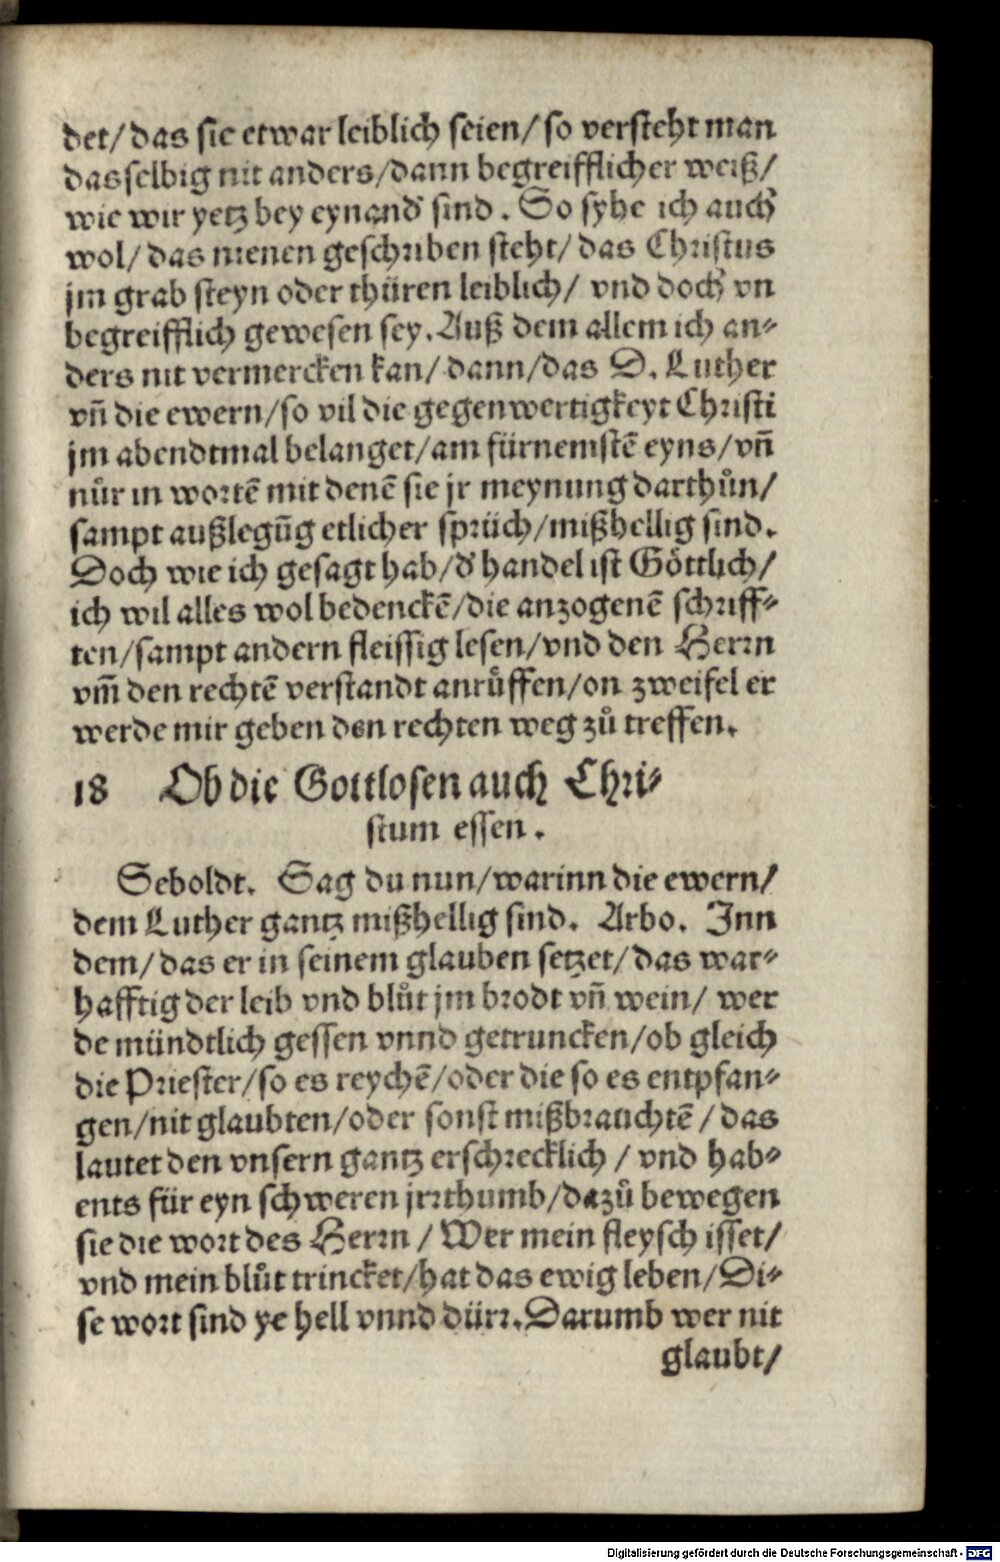 det/ das sie etwar leiblich seien/ so versteht man
dasselbig nit anders/dann begreifflicher weiß/
wie wir yetz bey eynand' sind. So syhe ich auch
wol/ das nienen geschriben steht/ das Christus
jm grab steyn oder thüren leiblich/ vnd doch vn
begreifflich gewesen sey. Auß dem allem ich an⸗
ders nit vermercken kan/ dann/das D. Luther
vñ die ewern/so vil die gegenwertigkeyt Christi
jm abendtmal belanget/am fürnemstẽ eyns/vñ
nůr in wortẽ mit denẽ sie jr meynung darthůn/
sampt außlegũg etlicher sprüch/mißhellig sind.
Doch wie ich gesagt hab/d' handel ist Göttlich/
ich wil alles wol bedenckẽ/die anzogenẽ schriff⸗
ten/sampt andern fleissig lesen/vnd den Herrn
vm̃ den rechtẽ verstandt anrůffen/on zweifel er
werde mir geben den rechten weg zů treffen.
18 Ob die Gottlosen auch Chri⸗
stum essen.
Seboldt. Sag du nun/warinn die ewern/
dem Luther gantz mißhellig sind. Arbo. Inn
dem/das er in seinem glauben setzet/das war⸗
hafftig der leib vnd blůt jm brodt vñ wein/ wer
de mündtlich gessen vnnd getruncken/ob gleich
die Priester/so es reychẽ/oder die so es entpfan⸗
gen/nit glaubten/oder sonst mißbrauchtẽ/das
lautet den vnsern gantz erschrecklich/ vnd hab⸗
ents für eyn schweren jrrthumb/dazů bewegen
sie die wort des Herrn/ Wer mein fleysch isset/
vnd mein blůt trincket/hat das ewig leben/Di⸗
se wort sind ye hell vnnd dürr. Darumb wer nit
glaubt/
Digitalisierung gefördert durch die Deutsche Forschungsgemeinschaft - DFG